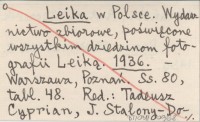 Leika w Polsce. Wydaw
nictwo zbiorowe, poświęcone
wszystkim dziedzinom foto-
grafii Leiką. 1936. —
Warszawa, Poznań. Ss. 80,
tabl. 48. Red.: Tadeusz
Cyprian, J. Stalony-Do-